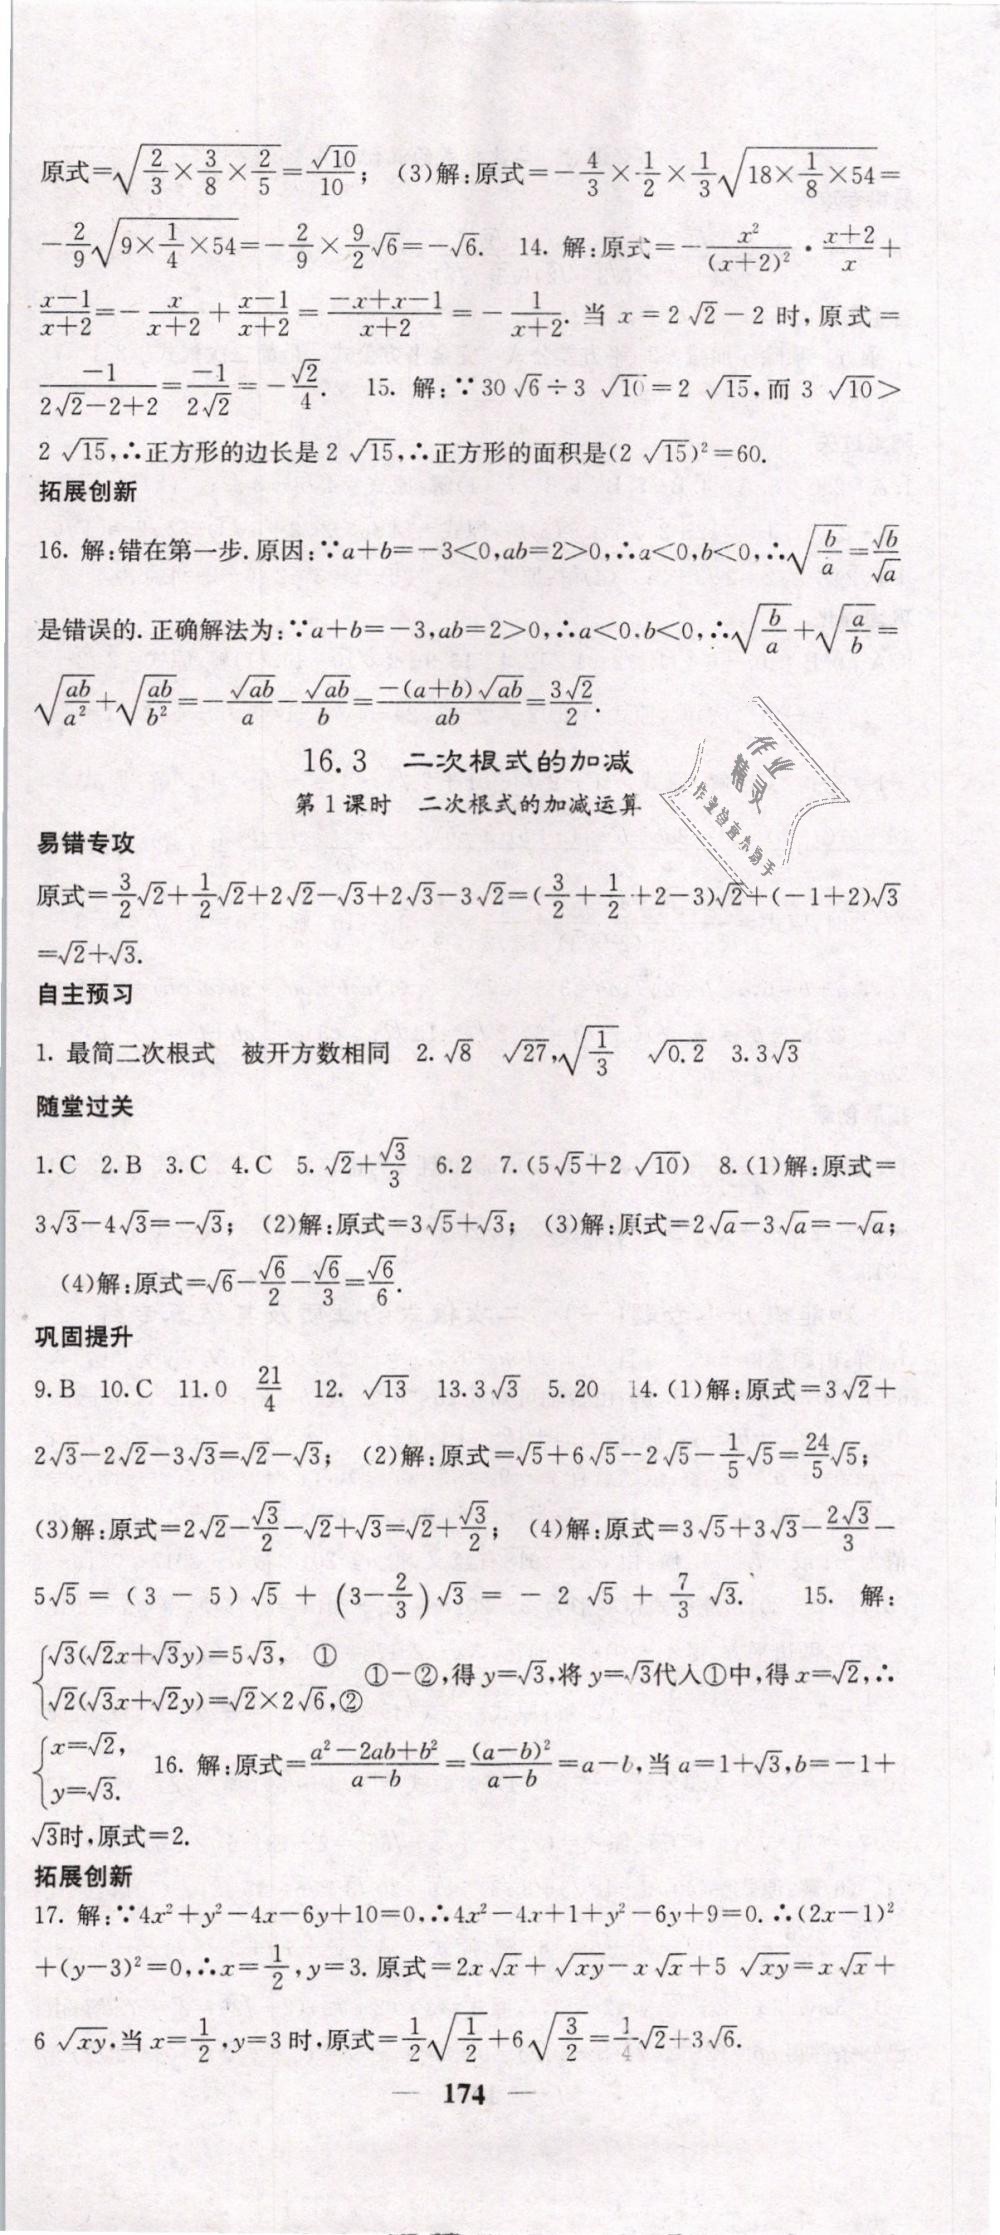 原式=√(2/3×3/8×2/5)=√10/10; (3)解:原式=-4/3×1/2×1/3√(18×1/8×54)=
-2/9√(9×1/4×54)=-2/9×9/2√6=-√6. 14. 解:原式=-x²/(x+2)²·(x+2)/x+
(x-1)/(x+2)=-x/(x+2)+(x-1)/(x+2)=(-x+x-1)/(x+2)=-1/(x+2). 当 x=2√2-2 时,原式=
-1/(2√2-2+2)=-1/(2√2)=-√2/4. 15. 解:∵30√6÷3√10=2√15,而 3√10>
2√15,∴正方形的边长是 2√15,∴正方形的面积是(2√15)²=60.
拓展创新
16. 解:错在第一步.原因:∵a+b=-3<0,ab=2>0,∴a<0,b<0,∴√(b/a)=√b/√a
是错误的.正确解法为:∵a+b=-3,ab=2>0,∴a<0.b<0,∴√(b/a)+√(a/b)=
√(ab/a²)+√(ab/b²)=-√ab/a-√ab/b=-(a+b)√ab/ab=3√2/2.
16.3 二次根式的加减
第1课时 二次根式的加减运算
易错专攻
原式=3/2√2+1/2√2+2√2-√3+2√3-3√2=(3/2+1/2+2-3)√2+(-1+2)√3
=√2+√3.
自主预习
1. 最简二次根式 被开方数相同 2. √8 √27,√(1/3) √0.2 3. 3√3
随堂过关
1.C 2.B 3.C 4.C 5. √2+√3/3 6.2 7.(5√5+2√10) 8.(1)解:原式=
3√3-4√3=-√3; (2)解:原式=3√5+√3; (3)解:原式=2√a-3√a=-√a;
(4)解:原式=√6-√6/2-√6/3=√6/6.
巩固提升
9.B 10.C 11.0 21/4 12. √13 13.3√3 5.20 14.(1)解:原式=3√2+
2√3-2√2-3√3=√2-√3; (2)解:原式=√5+6√5-2√5-1/5√5=24/5√5;
(3)解:原式=2√2-√3/2-√2+√3=√2+√3/2; (4)解:原式=3√5+3√3-2√3/3-
5√5=(3-5)√5+(3-2/3)√3=-2√5+7/3√3. 15. 解:
{√3(√2x+√3y)=5√3, ①
√2(√3x+√2y)=√2×2√6,② ①-②,得 y=√3,将 y=√3代入①中,得 x=√2,∴
{x=√2,
y=√3. 16. 解:原式=(a²-2ab+b²)/(a-b)=(a-b)²/(a-b)=a-b,当 a=1+√3,b=-1+
√3时,原式=2.
拓展创新
17. 解:∵4x²+y²-4x-6y+10=0,∴4x²-4x+1+y²-6y+9=0.∴(2x-1)²
+(y-3)²=0,∴x=1/2,y=3.原式=2x√x+√xy-x√x+5√xy=x√x+
6√xy,当 x=1/2,y=3 时,原式=1/2√(1/2)+6√(3/2)=1/4√2+3√6.
174
作业
精灵